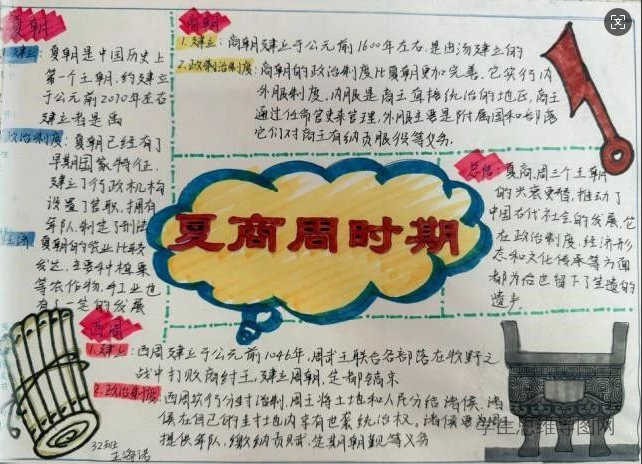 夏朝
1.建立:夏朝是中国历史上
第一个王朝,约建立
于公元前2070年左右
建立者是禹
政治制度:夏朝已经有了
早期国家特征,
建立了行政机构
设置了官职,拥有
军队制定了刑法
经济:夏朝的农业比较
发达,主要种植粟
等农作物,手工业也
有了一定的发展
商朝
1.建立:商朝建立于公元前1600年左右,是由汤建立的
2.政制治制度:商朝的政治制度比夏朝更加完善,它实行内
外服制度,内服是商王直接统治的地区,商王
通过任命官吏来管理,外服主要是附属国和部落
它们对商王有纳贡服役等义务.
总结:夏、商、周三个王朝
的兴衰更替,推动了
中国古代社会的发展,它
在政治制度、经济形
态和文化传承等方面
都为后世留下了
遗产
夏商周时期
西周
1.建立:西周建立于公元前1046年,周武王联合各部落在牧野之
战中打败商纣王,建立周朝,定都镐京
2.政治制度:西周实行分封制,周王将土地和人民分给诸侯,诸
侯在自己的封地内享有世袭统治权,诸侯要向周
提供军队,缴纳贡赋,定期朝觐等义务
学生思维导图网